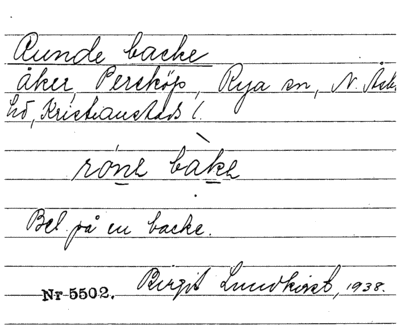 Runde backe
åker, Perstöp, Rya sn, N. Åsb
hd, Kristianstads l.
ròne bàke
Bel. på en backe.
Nr 5502. Birgit Lundkvist, 1938.